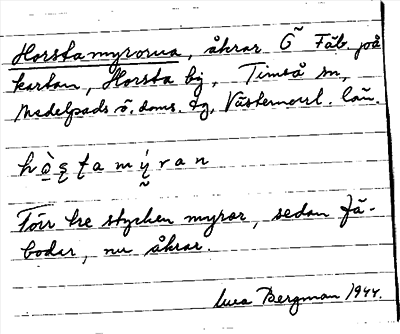 Horstamyrorna, åkrar Ö Fäb. på
kartan, Horsta by, Timrå sn,
Medelpads ö. doms. tg, Västernorrl. län.
hò̱ʂʈamý̰ran
Förr tre stycken myrar, sedan fä-
bodar, nu åkrar.
Bergman 1944.